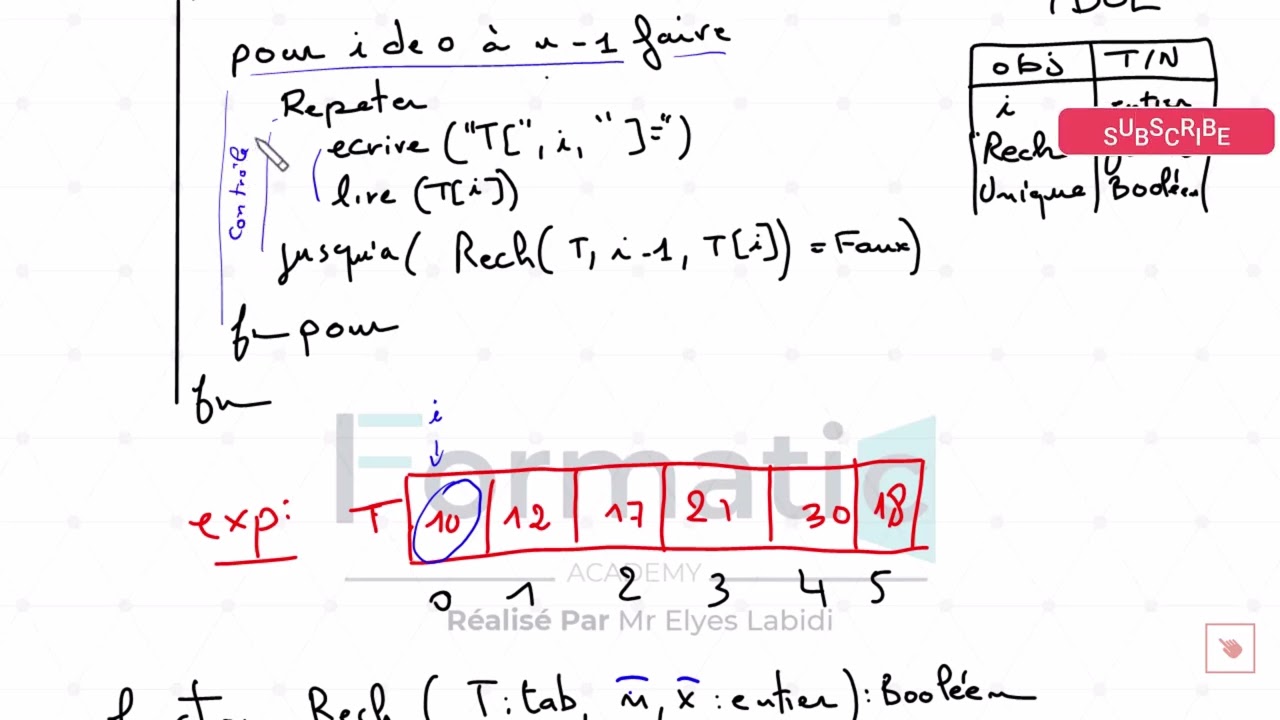 pour i de 0 à n-1 faire
Repeter
ecrire ("T[", i, "]=")
lire (T[i])
jusqu'a ( Rech( T, i-1, T[i]) = Faux)
fin pour
fin
Controle
TDOL
obj T/N
i entier
Rech
Unique Booléen
SUBSCRIBE
i
exp: T 10 12 17 21 30 18
0 1 2 3 4 5
Formatic
ACADEMY
Réalisé Par Mr Elyes Labidi
Rech ( T: tab, n, x : entier) : Booléen